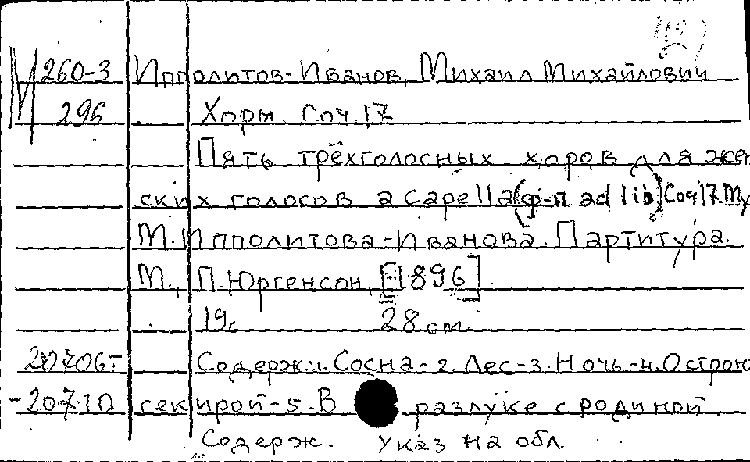 М 260-3 Ипполитов-Иванов, Михаил Михайлович
296 Хоры. Соч.17
Пять трёхголосных хоров для жен
ских голосов a capella (ф-п ad lib) Соч17. Му
М. Ипполитова-Иванова. Партитура.
М., П. Юргенсон, [1896]
19с 28 cm.
Содерж: 1. Сосна - 2. Лес - 3. Ночь - 4. Острою
секирой - 5. В разлуке с родиной.
Содерж. указ на обл.